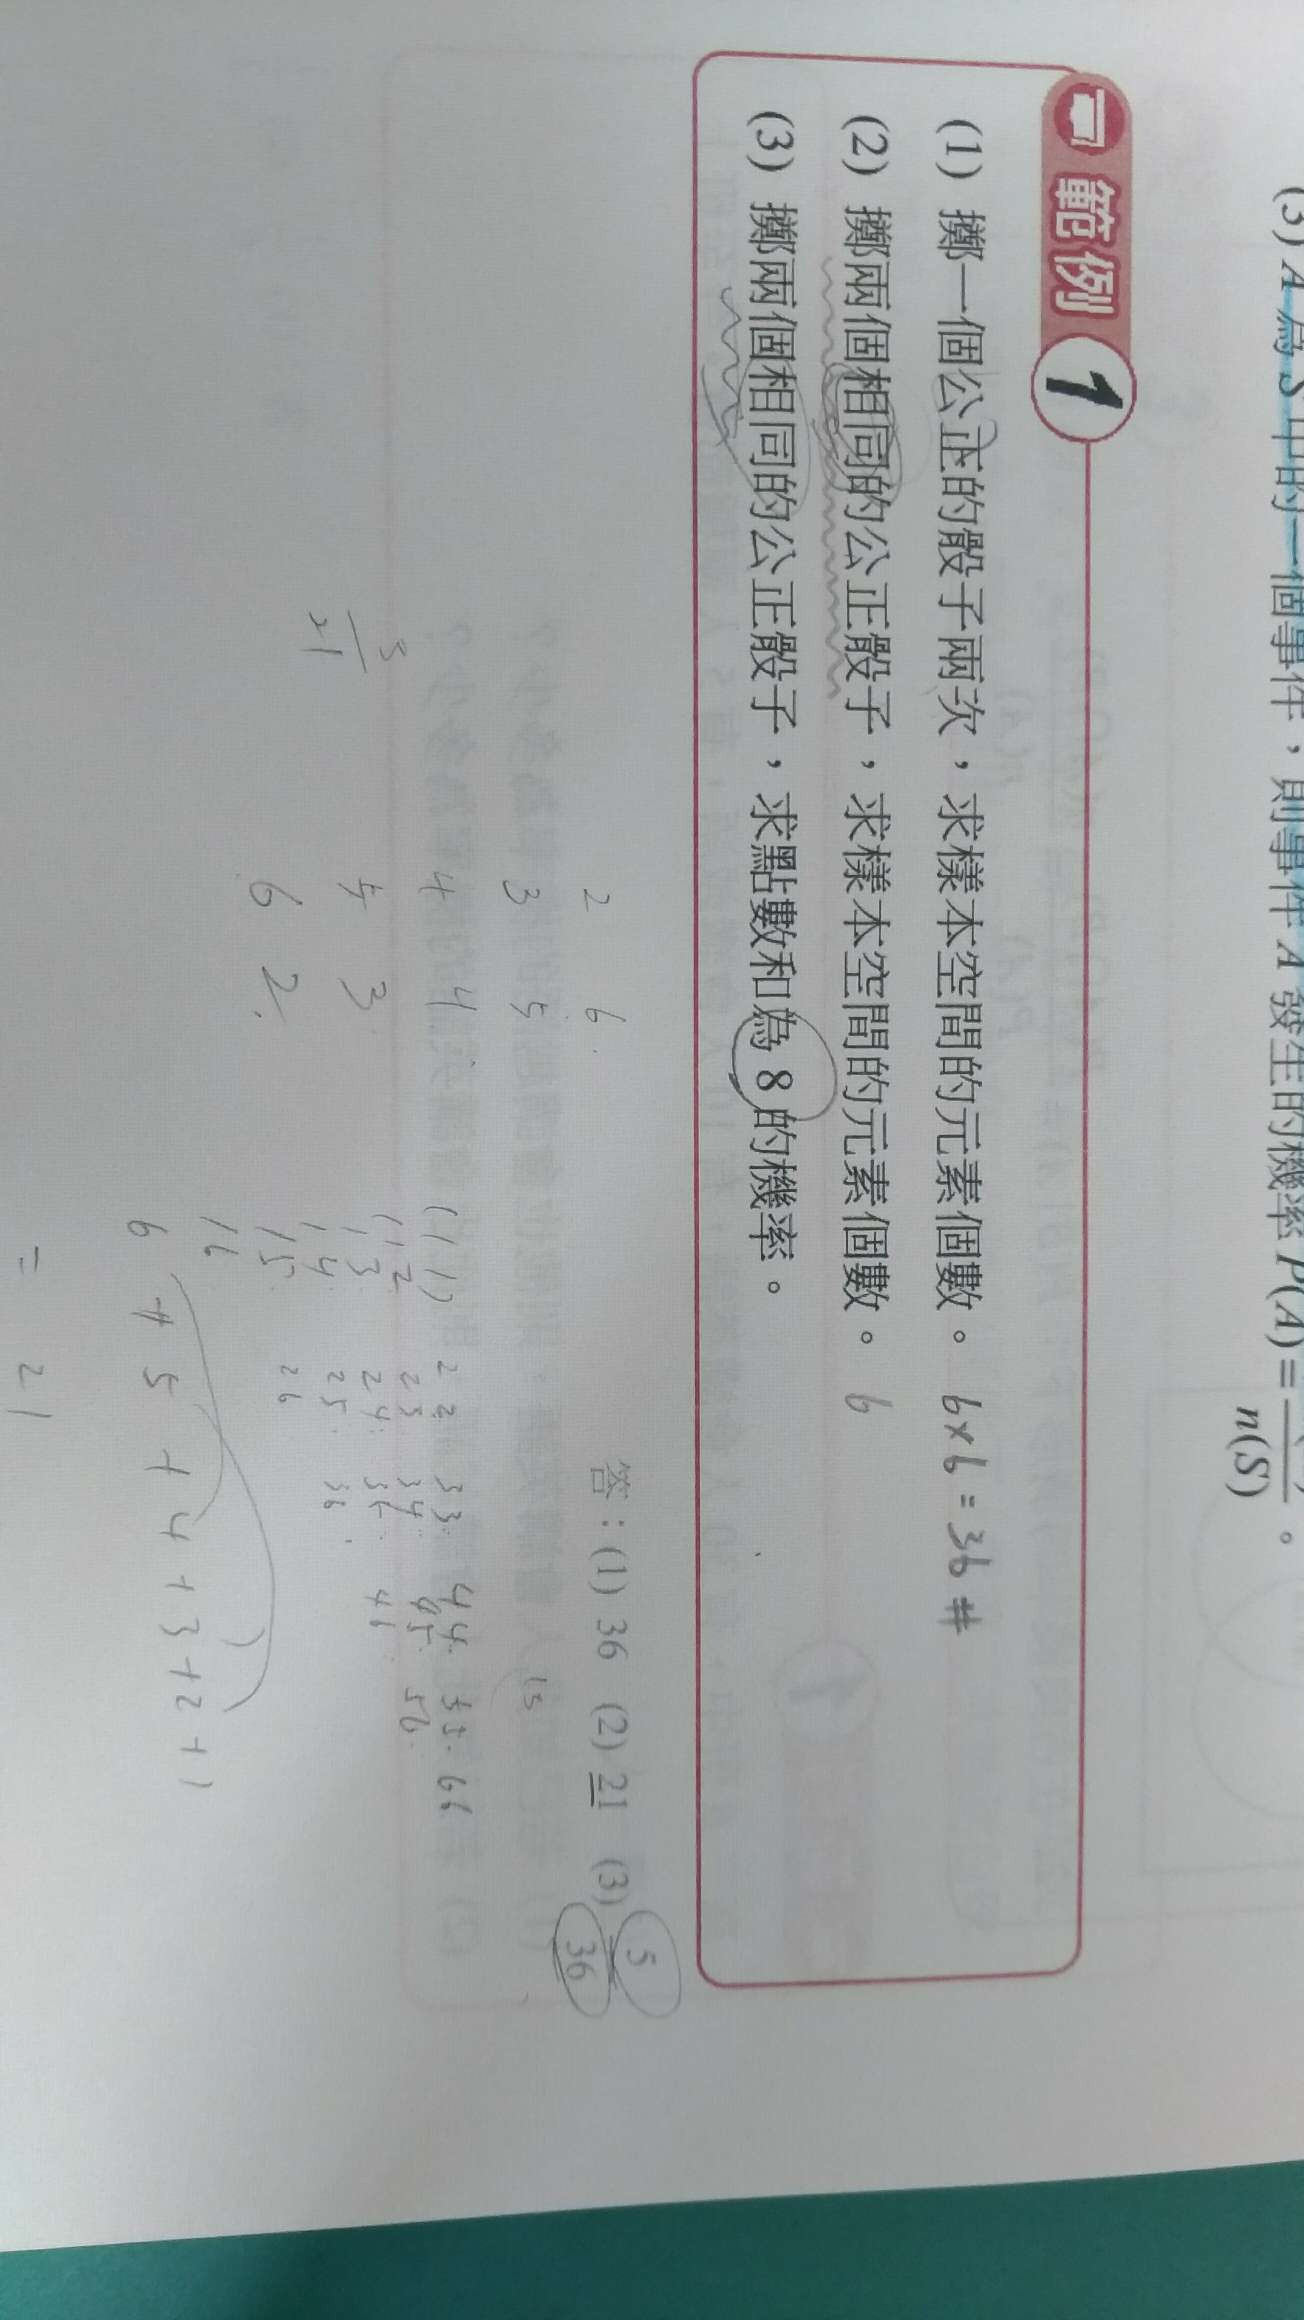 (3) A 為 S 中的一個事件，則事件 A 發生的機率 P(A) =
n(S)
。
範例 1
(1) 擲一個公正的骰子兩次，求樣本空間的元素個數。 6×6=36 #
(2) 擲兩個相同的公正骰子，求樣本空間的元素個數。 6
(3) 擲兩個相同的公正骰子，求點數和為 8 的機率。
答：(1) 36 (2) 21 (3) 5/36
2 6
3 5
4 4
5 3
6 2
3/21
(1 1) 22 33 44 55 66
(1 2 23 34 45 56
1 3 24 35 46
1 4 25 36
15 26
16
15
6 + 5 + 4 + 3 + 2 + 1
= 21